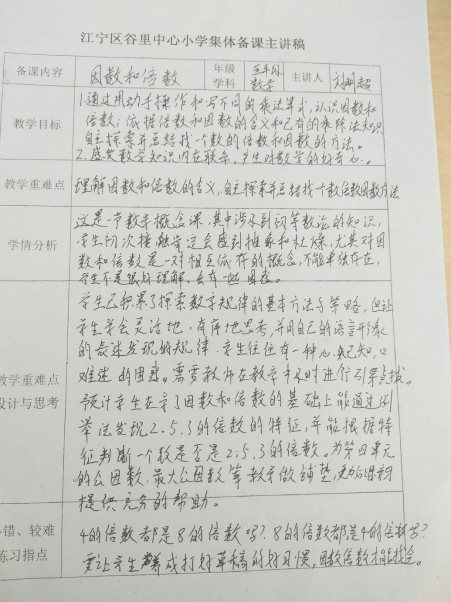 江宁区谷里中心小学集体备课主讲稿
备课内容 因数和倍数 年级学科 五年级数学 主讲人 刘明超
教学目标
1.通过用动手操作和写不同的乘法算式,认识因数和
倍数;依据倍数和因数的含义和已有的乘除法知识,
自主探索并总结找一个数的倍数和因数的方法。
2.感受数学知识内在联系,产生对数学的好奇心。
教学重难点 理解因数和倍数的含义,自主探索并总结找个数倍数因数方法
学情分析
这是一节数学概念课,其中涉及到初等数论的知识,
学生初次接触者这会感到抽象和枯燥,尤其对因
数和倍数是一对相互依存的概念,不能单独存在,
学生不是很好理解,会有一些困难。
教学重难点
设计与思考
学生已积累了探索数学规律的基本方法与策略,但让
学生学会灵活地,有序地思考,并用自己的语言
的表述发现的规律,学生往往有一种心知,口
难述的困惑。需要教师在教学中及时进行引导点拨。
预计学生在学了因数和倍数的基础上能通过例
举法发现2.5.3的倍数的特征,并能根据特
征判断一个数是否是2,5,3的倍数。为第四单元
的公因数,最大公因数等教学做铺垫,
提供充分的帮助。
易错、较难
练习指点
4的倍数都是8的倍数吗?8的倍数都是4的倍数吗?
要让学生养成打好草稿的好习惯,因数倍数才能找全。